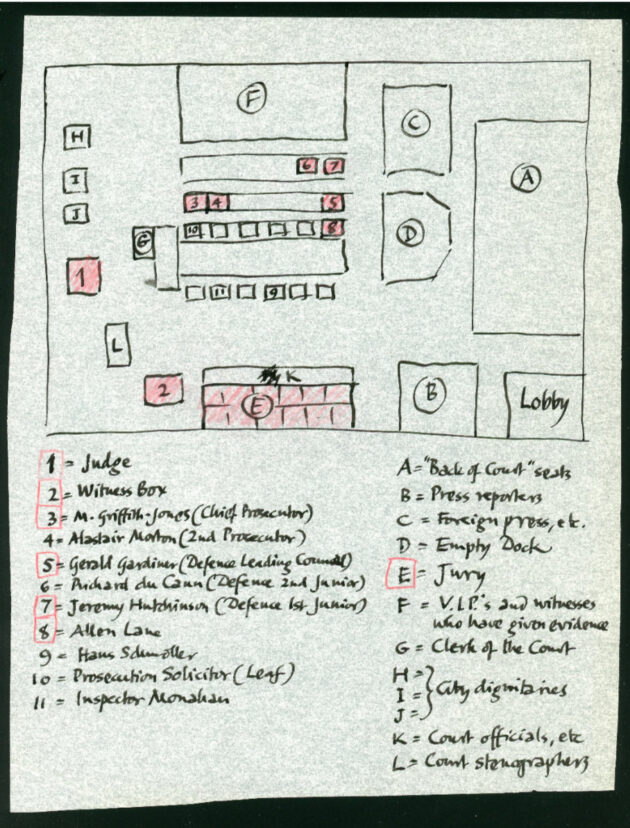 F
C
A
H
6 7
I
3 4 5
J
10 8
G
D
1
11 9
L
K
2
E
B
Lobby
1 = Judge
2 = Witness Box
3 = M. Griffith-Jones (Chief Prosecutor)
4 = Alastair Morton (2nd Prosecutor)
5 = Gerald Gardiner (Defence Leading Counsel)
6 = Richard du Cann (Defence 2nd Junior)
7 = Jeremy Hutchinson (Defence 1st Junior)
8 = Allen Lane
9 = Hans Schmoller
10 = Prosecution Solicitor (Leaf)
11 = Inspector Monahan
A = "Back of Court" seats
B = Press reporters
C = Foreign press, etc.
D = Empty Dock
E = Jury
F = V.I.P.'s and witnesses
who have given evidence
G = Clerk of the Court
H =
I = } City dignitaries
J =
K = Court officials, etc
L = Court stenographers